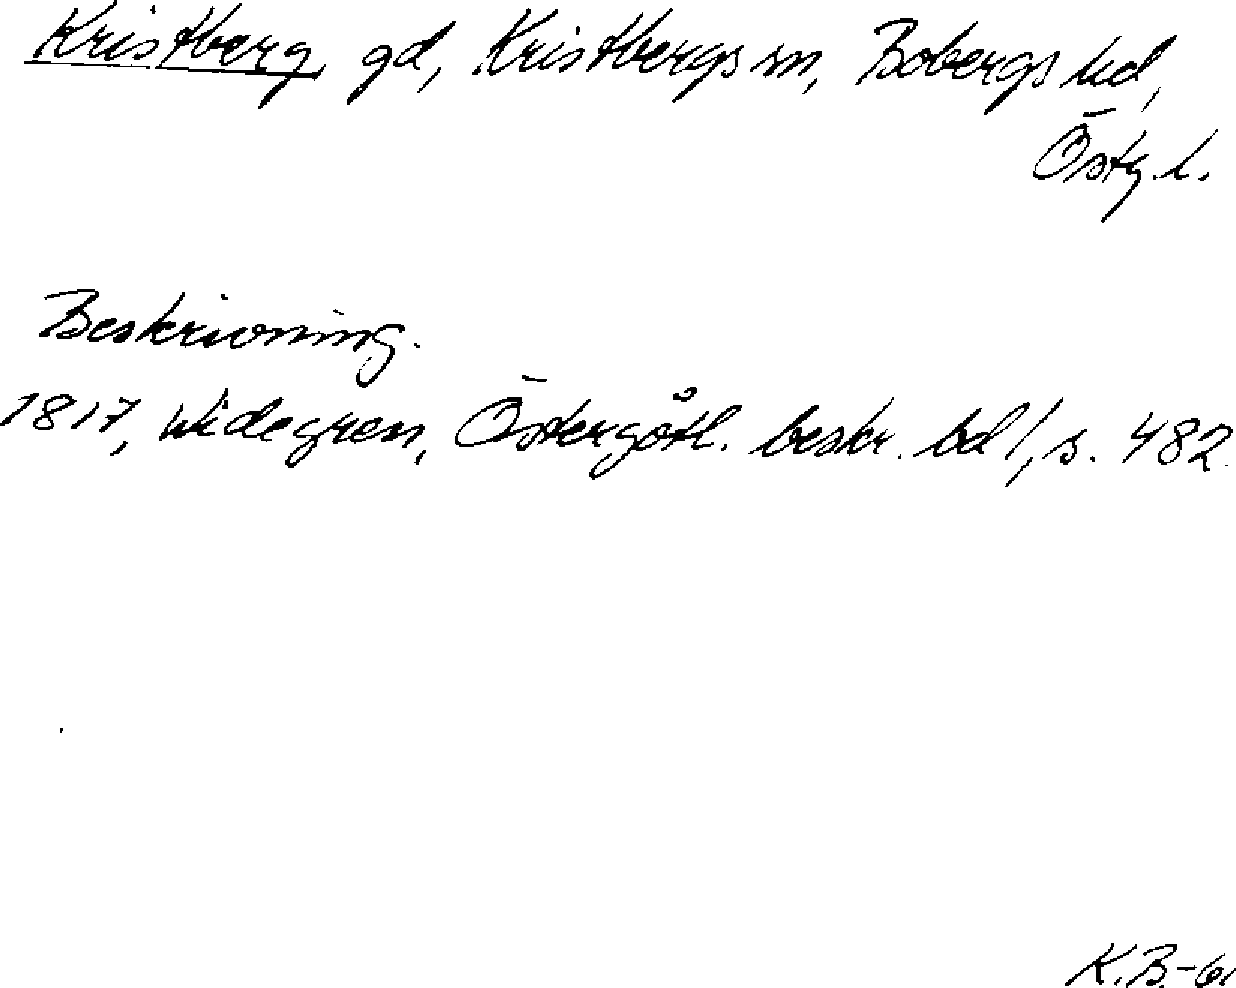 Kristberg gd, Kristbergs sn, Bobergs hd,
Östg. l.
Beskrivning.
1817, Widegren, Östergötl. beskr. bd 1, s. 482.
K.B.-61